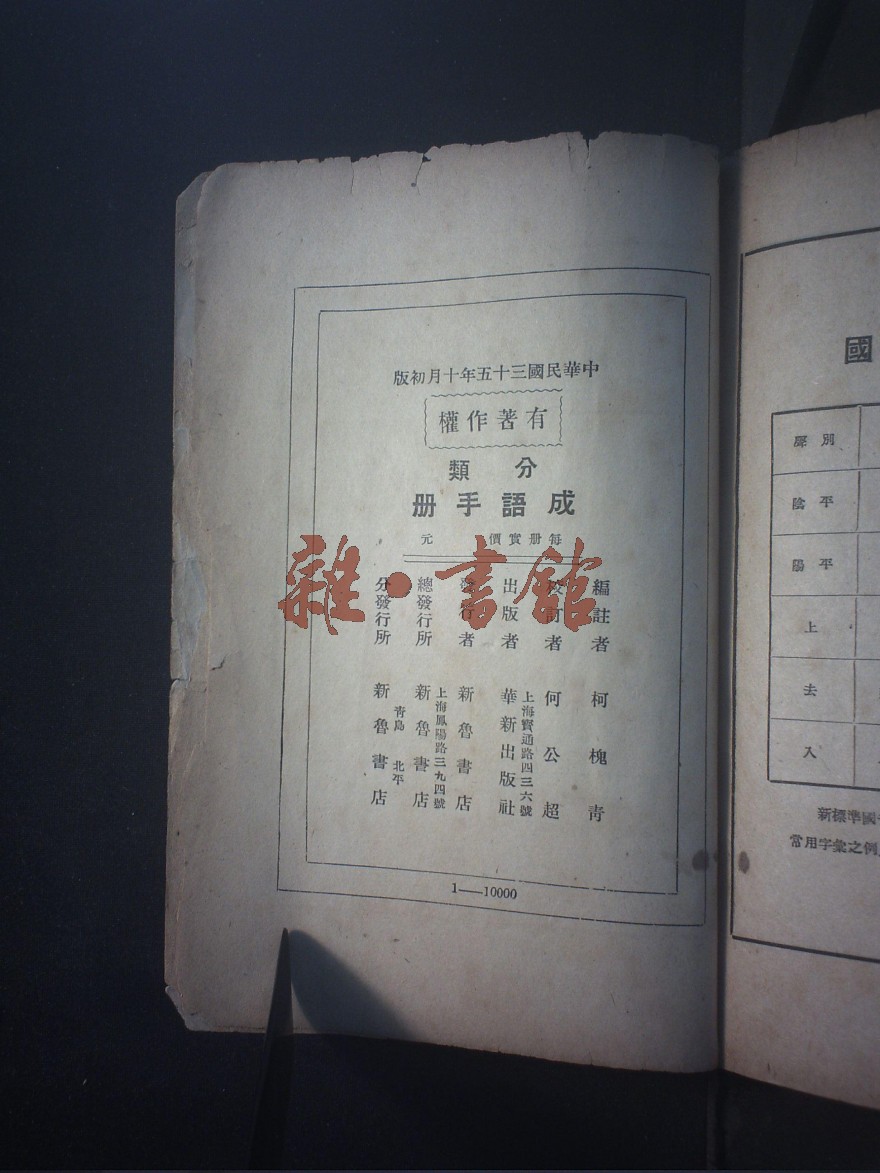 中華民國三十五年十月初版
有著作權
分類
成語手册
每册實價 元
編註者 柯槐靑
校訂者 何公超
出版者 華新出版社
上海寶通路四三六號
發行者 新魯書店
總發行所 新魯書店
上海鳳陽路三九四號
分發行所 新魯書店
靑島 北平
1——10000
雜·書館
國
聲別
陰平
陽平
上
去
入
新標準國
常用字彙之例